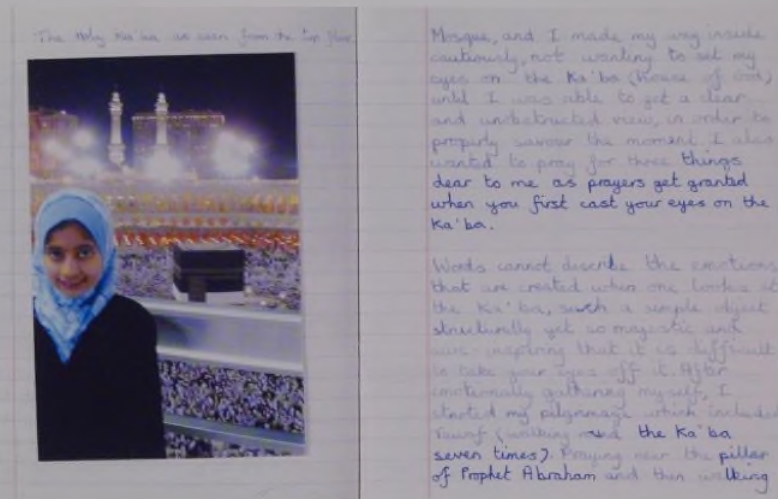 The Holy Ka'ba as seen from the top floor
Mosque, and I made my way inside
cautiously, not wanting to set my
eyes on the Ka'ba (House of God)
until I was able to get a clear
and unobstructed view, in order to
properly savour the moment. I also
wanted to pray for three things
dear to me as prayers get granted
when you first cast your eyes on the
Ka'ba.
Words cannot describe the emotions
that are created when one looks at
the Ka'ba, such a simple object
structurally yet so majestic and
awe-inspiring that it is difficult
to take your eyes off it. After
emotionally gathering myself, I
started my pilgrimage which includes
Tawaf (walking round the Ka'ba
seven times). Praying near the pillar
of Prophet Abraham and then walking